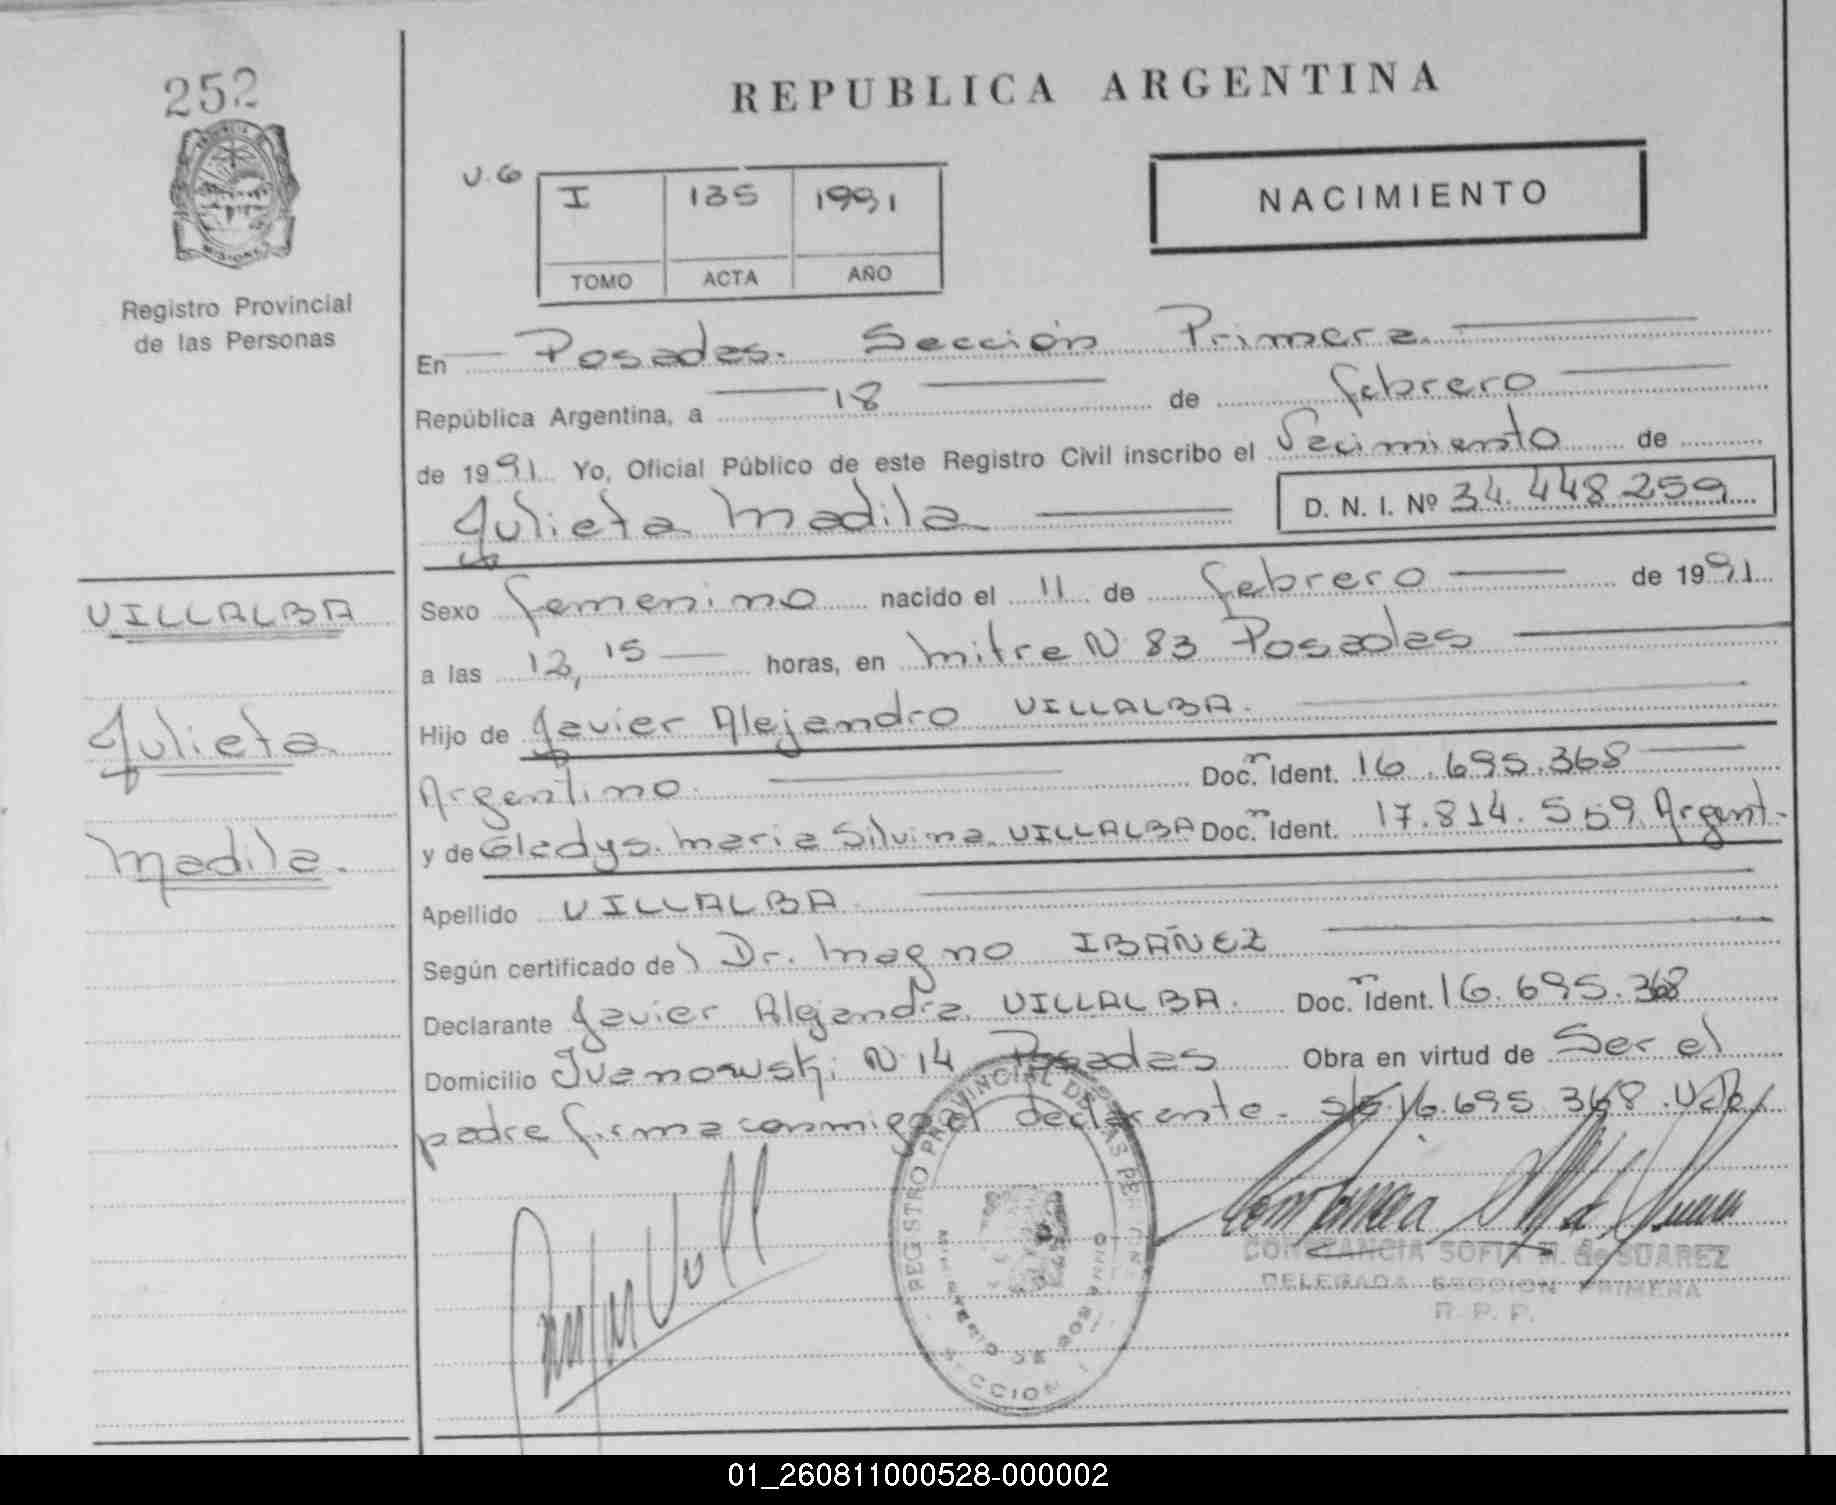 252
REPUBLICA ARGENTINA
U.G
I 135 1991
TOMO ACTA AÑO
NACIMIENTO
Registro Provincial
de las Personas
En Posadas. Sección Primera
República Argentina, a 18 de febrero
de 1991 Yo, Oficial Público de este Registro Civil inscribo el Nacimiento de
Julieta Madila D. N. I. Nº 34.448.259
Sexo femenino nacido el 11 de febrero de 1991
a las 12,15 horas, en Mitre N 83 Posadas
Hijo de Javier Alejandro VILLALBA.
Argentino. Doc. Ident. 16.695.368
y de Gladys. Maria Silvina. VILLALBA Doc. Ident. 17.814.559 Argent.
Apellido VILLALBA
Según certificado del Dr. Magno IBAÑEZ
Declarante Javier Alejandra VILLALBA. Doc. Ident. 16.695.368
Domicilio Ivanowski N 14 Posadas Obra en virtud de Ser el
padre firma conmigo el declarante. S/R 16.695.368. Vale
VILLALBA
Julieta
Madila.
REGISTRO PROVINCIAL DE LAS PERSONAS
MINISTERIO DE GOBIERNO
SECCION 1
CONSTANCIA SOFIA M. de SUAREZ
DELEGADA SECCION PRIMERA
R. P. P.
01_260811000528-000002